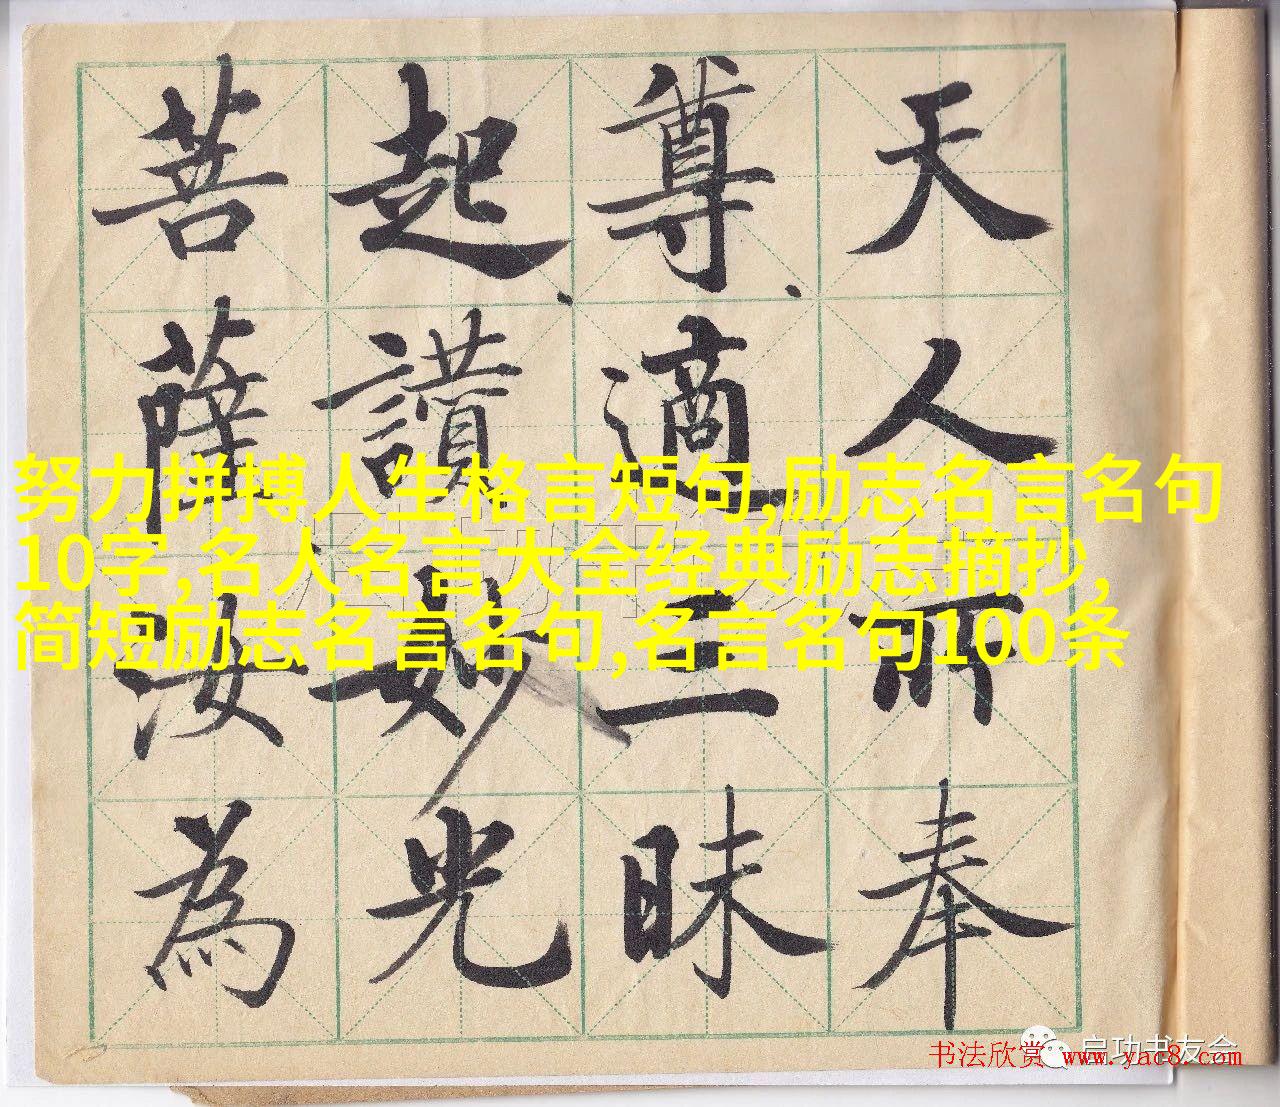 天人所奉
尊適三昧
起讃妙光
菩薩汝為
努力拼搏人生格言短句,励志名言名句
10字,名人名言大全经典励志摘抄,
简短励志名言名句,名言名句100条
启功书友会
书法欣赏 www.yac8.com